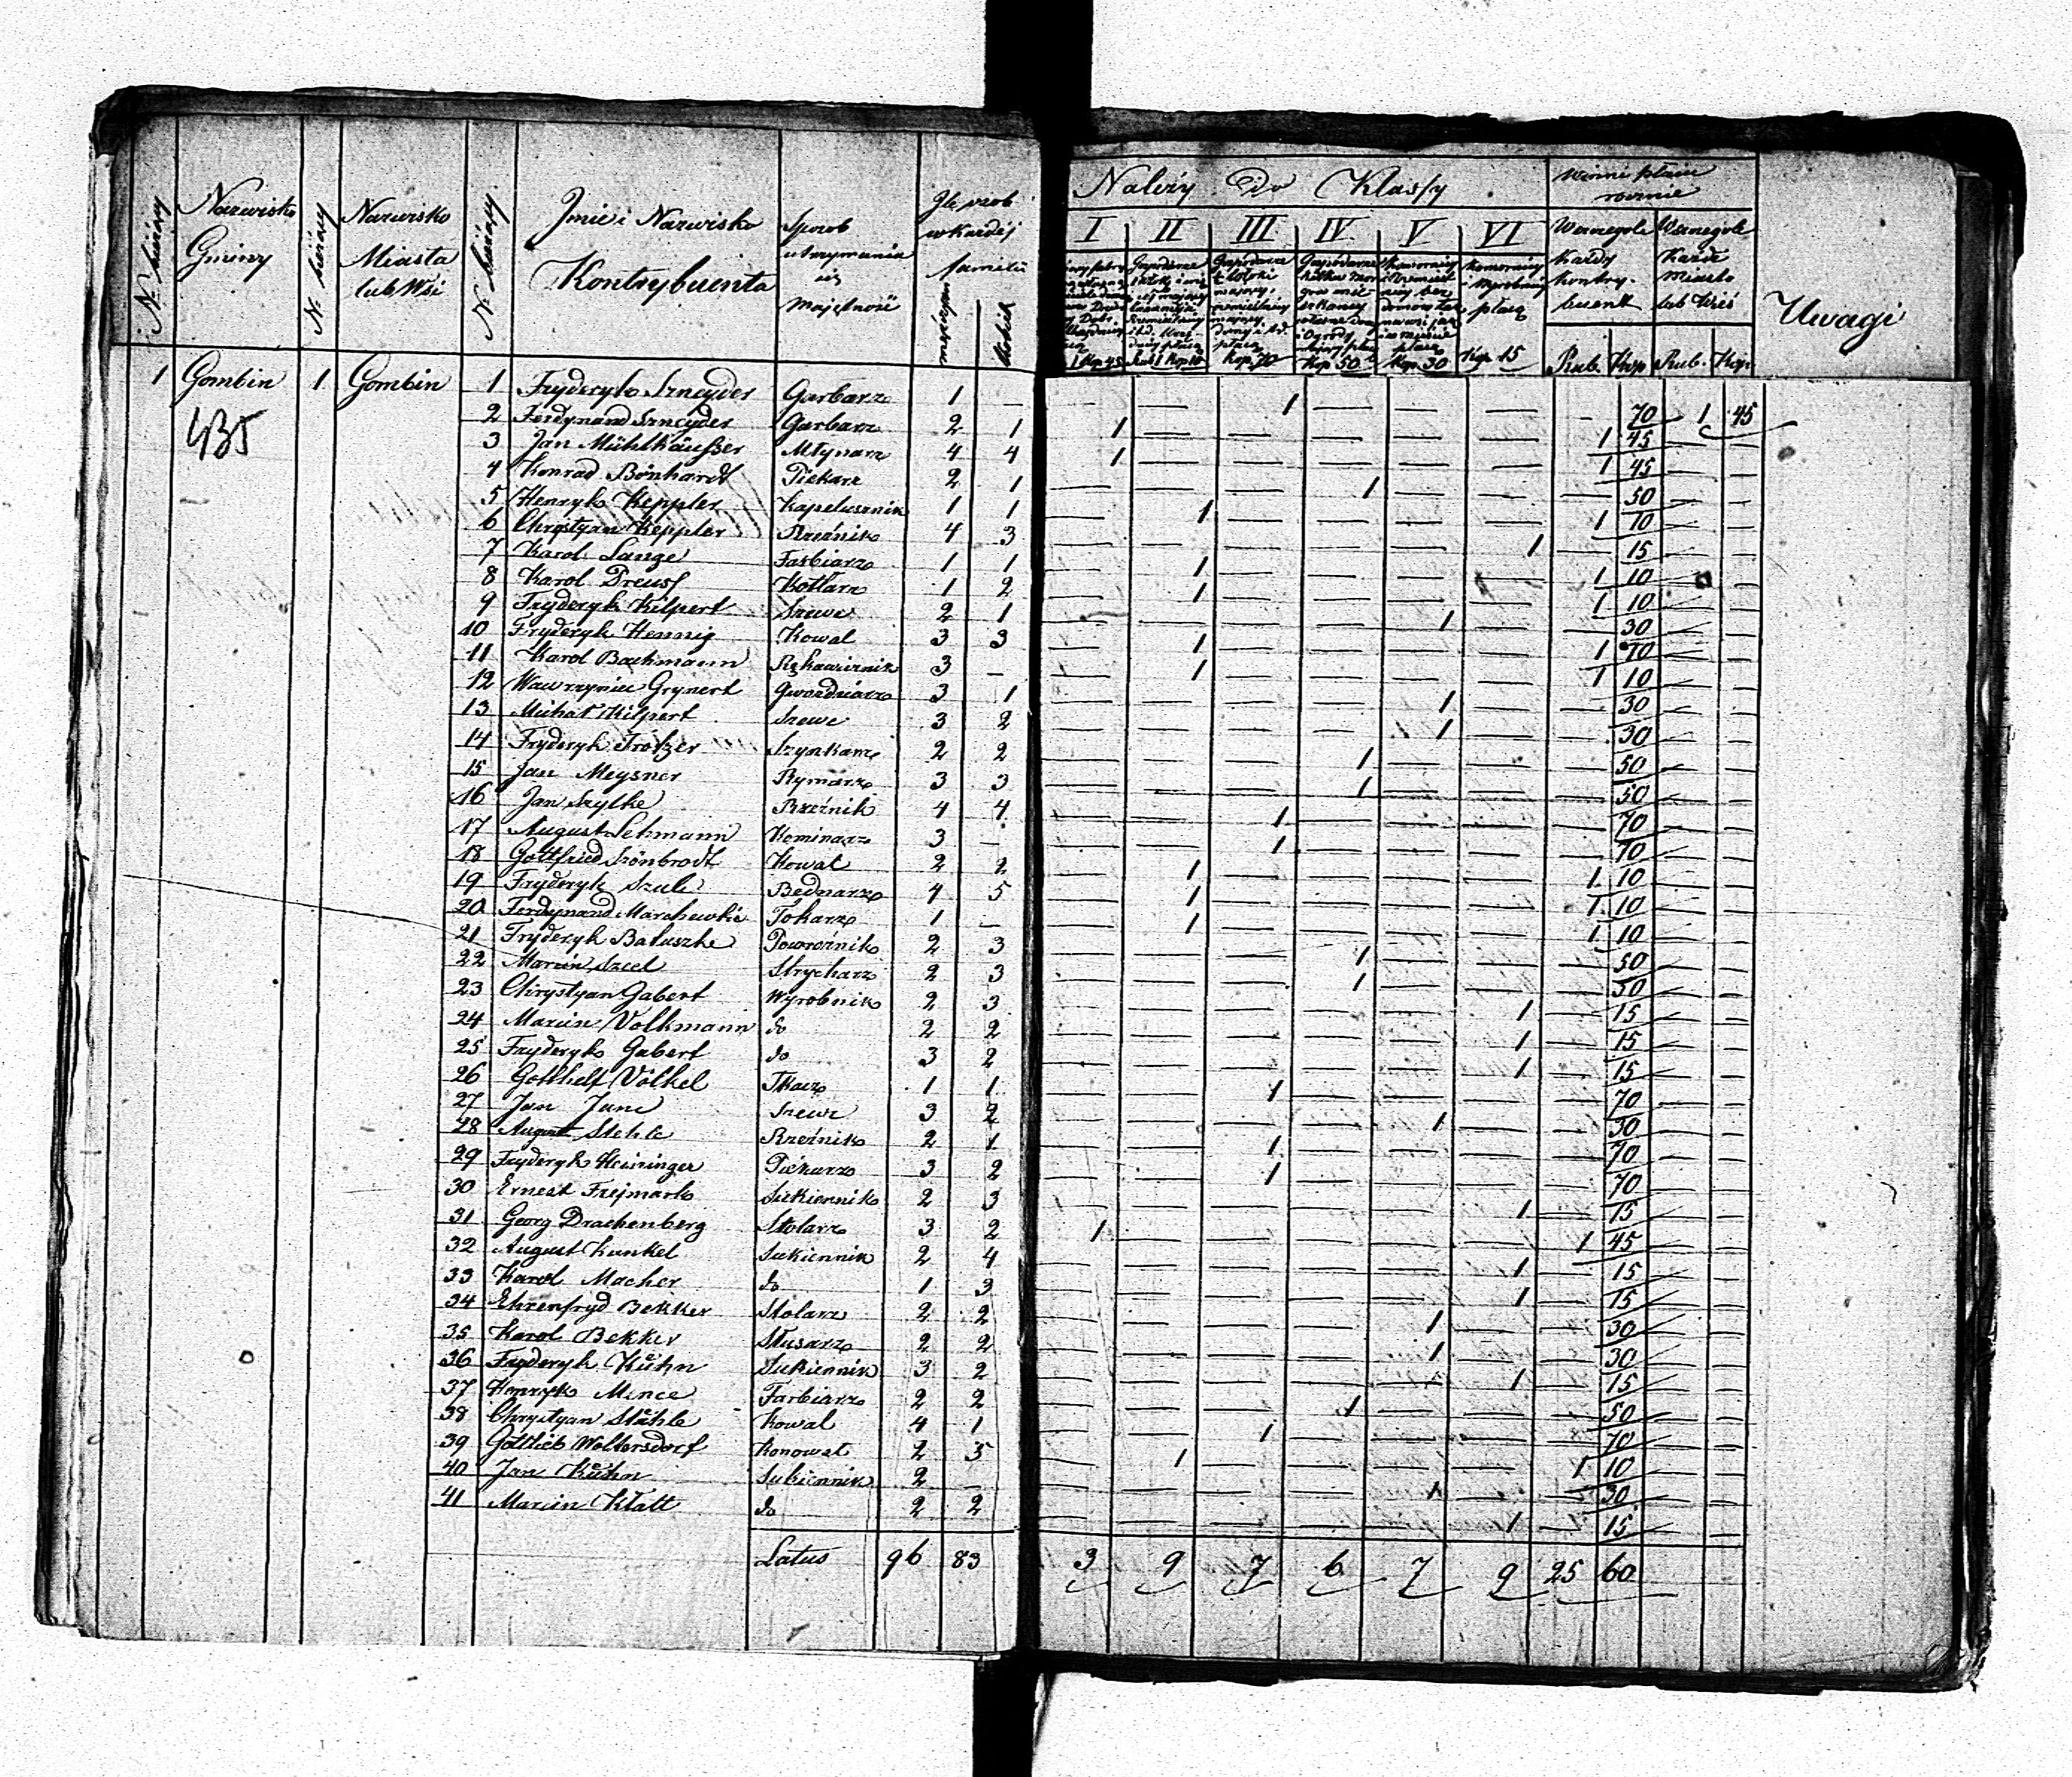 N. bieżący
Nazwisko Gminy
N. bieżący
Nazwisko Miasta lub Wsi
N. bieżący
Jmie i Nazwisko Kontrybuenta
Sposob utrzymania się Majętność
Jle osob w Każdéj familii
mężczyzn
Kobiét
Należy do Klassy
I II III IV V VI
Winni płacić rocznie
Wszczegole Każdy kontrybuent
Wszczegole Każde Miasto lub Wieś
Kop 70 Kop 50 Kop 30 Kop 15
Rub. Kop Rub. Kop.
Uwagi
1 Gombin 1 Gombin 1 Fryderyk Szneyder Garbarz 1 — — — 1 — — — — 70 1 45
435
2 Ferdynand Szneyder Garbarz 2 1 1 — — — — — 1 45 — —
3 Jan Mühlhäusser Młynarz 4 4 1 — — — — — 1 45 — —
4 Konrad Bönhardt Piekarz 2 1 — — — 1 — — — 50 — —
5 Henryk Keppler Kapelusznik 1 1 — 1 — — — — 1 10 — —
6 Chrystyan Keppler Rzeźnik 4 3 — — — — — 1 — 15 — —
7 Karol Lange Farbiarz 1 1 — 1 — — — — 1 10 — —
8 Karol Dreuss Kotlarz 1 2 — 1 — — — — 1 10 — —
9 Fryderyk Hilpert Szewc 2 1 — — — — 1 — — 30 — —
10 Fryderyk Hennig Kowal 3 3 — 1 — — — — 1 10 — —
11 Karol Backmann Rękawicznik 3 — — 1 — — — — 1 10 — —
12 Wawrzyniec Grynert Gwoździarz 3 1 — — — — 1 — — 30 — —
13 Michał Hilpert Szewc 3 2 — — — — 1 — — 30 — —
14 Fryderyk Trotzer Szynkarz 2 2 — — — 1 — — — 50 — —
15 Jan Meysner Rymarz 3 3 — — — 1 — — — 50 — —
16 Jan Szylke Rzeźnik 4 4 — — 1 — — — — 70 — —
17 August Lehmann Kominarz 3 — — — 1 — — — — 70 — —
18 Gottfried Szönbrodt Kowal 2 2 — 1 — — — — 1 10 — —
19 Fryderyk Szulc Bednarz 4 5 — 1 — — — — 1 10 — —
20 Ferdynand Marchewkie Tokarz 1 — — 1 — — — — 1 10 — —
21 Fryderyk Batuszke Powroźnik 2 3 — — — 1 — — — 50 — —
22 Marcin Szeel Strycharz 2 3 — — — 1 — — — 50 — —
23 Chrystyan Gabert Wyrobnik 2 3 — — — — — 1 — 15 — —
24 Marcin Volkmann do 2 2 — — — — — 1 — 15 — —
25 Fryderyk Gabert do 3 2 — — — — — 1 — 15 — —
26 Gotthelf Völkel Tkacz 1 1 — — 1 — — — — 70 — —
27 Jan Junc Szewc 3 2 — — — — 1 — — 30 — —
28 August Stehle Rzeźnik 2 1 — — 1 — — — — 70 — —
29 Fryderyk Heininger Piekarz 3 2 — — 1 — — — — 70 — —
30 Ernest Frejmark Sukiennik 2 3 — — — — — 1 — 15 — —
31 Georg Drachenberg Stolarz 3 2 1 — — — — — 1 45 — —
32 August Kunkel Sukiennik 2 4 — — — — — 1 — 15 — —
33 Karol Macher do 1 3 — — — — — 1 — 15 — —
34 Ehrenfryd Bekker Stolarz 2 2 — — — — 1 — — 30 — —
35 Karol Bekker Slusarz 2 2 — — — — 1 — — 30 — —
36 Fryderyk Kühn Sukiennik 3 2 — — — — — 1 — 15 — —
37 Henryk Mince Farbiarz 2 2 — — — 1 — — — 50 — —
38 Chrystyan Stähle Kowal 4 1 — — 1 — — — — 70 — —
39 Gottlieb Woltersdorf Konował 2 3 — 1 — — — — 1 10 — —
40 Jan Kühn Sukiennik 2 — — — — — 1 — — 30 — —
41 Marcin Klatt do 2 2 — — — — — 1 — 15 — —
Latus 96 83 3 9 7 6 7 9 25 60